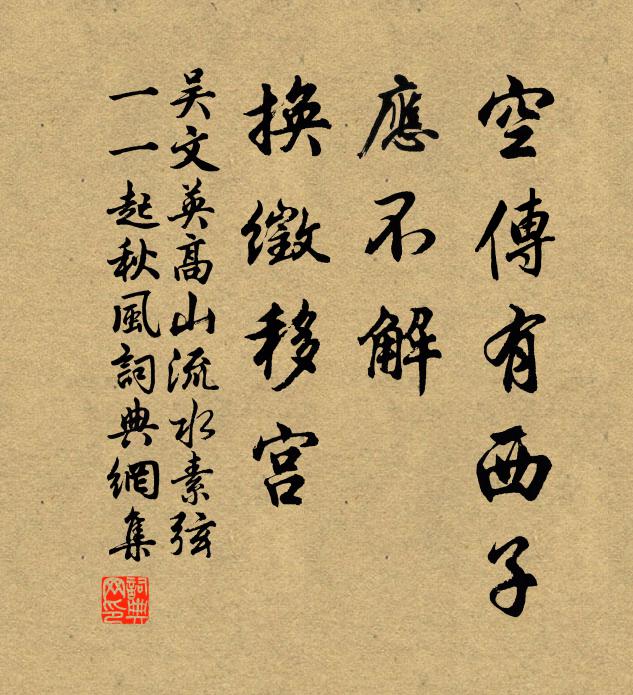 空傳有西子
應不解
換徵移宮
吳文英高山流水素弦
一一起秋風詞典網集
詞典網印